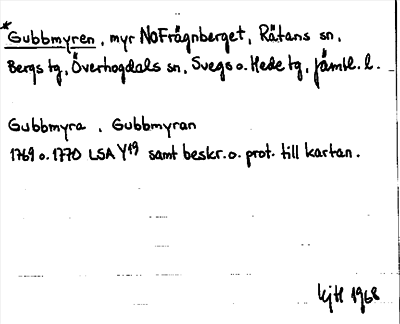 *Gubbmyren, myr NoFrägnberget, Rätans sn,
Bergs tg, Överhogdals sn, Svegs o. Hede tg, Jämtl. l.
Gubbmyra, Gubbmyran
1769 o. 1770 LSA Y19 samt beskr. o. prot. till kartan.
1968